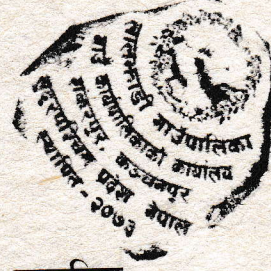 लालझाडी गाउँपालिका
गाउँ कार्यपालिकाको कार्यालय
कञ्चनपुर
सुदूरपश्चिम प्रदेश नेपाल
स्थापित - २०७३